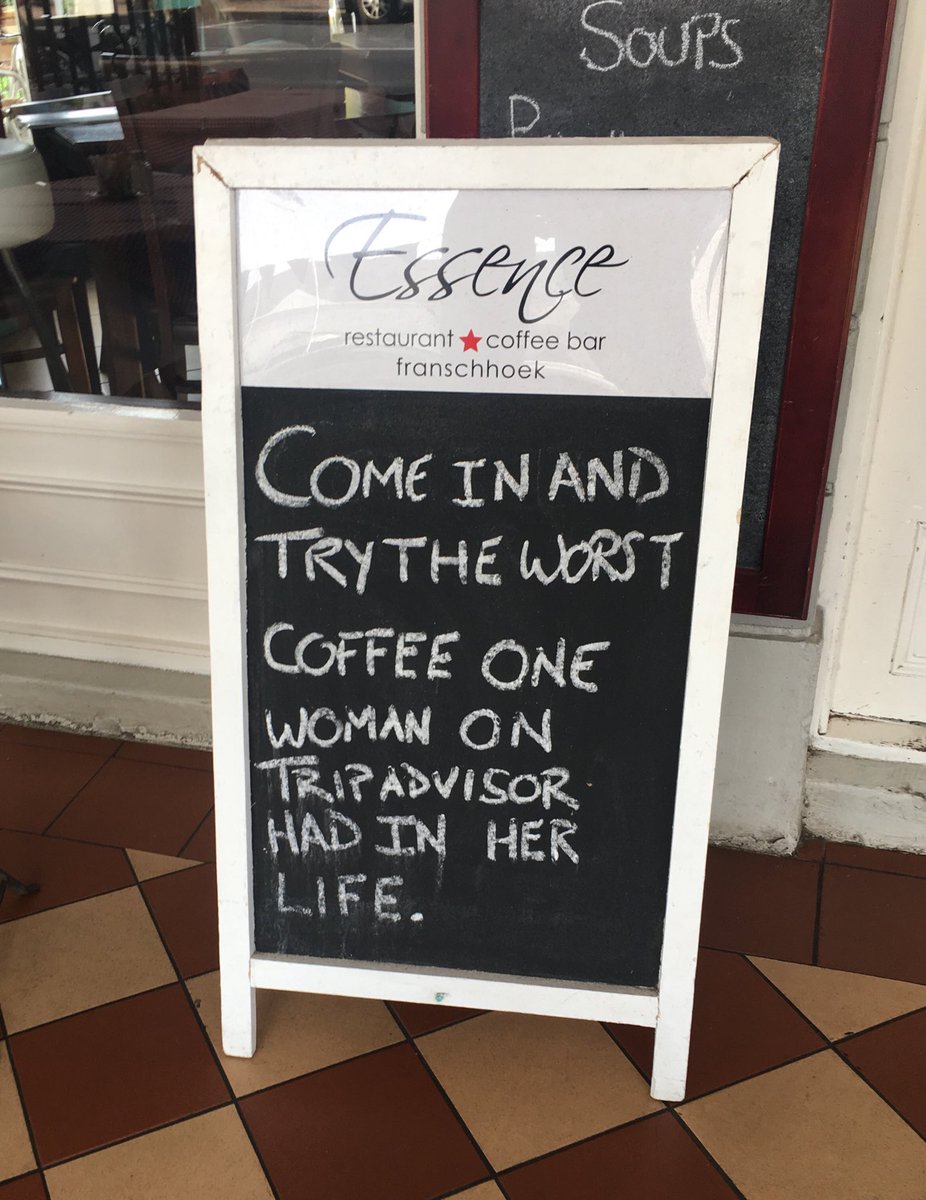 SOUPS
Essence
restaurant★coffee bar
franschhoek
COME IN AND
TRY THE WORST
COFFEE ONE
WOMAN ON
TRIPADVISOR
HAD IN HER
LIFE.